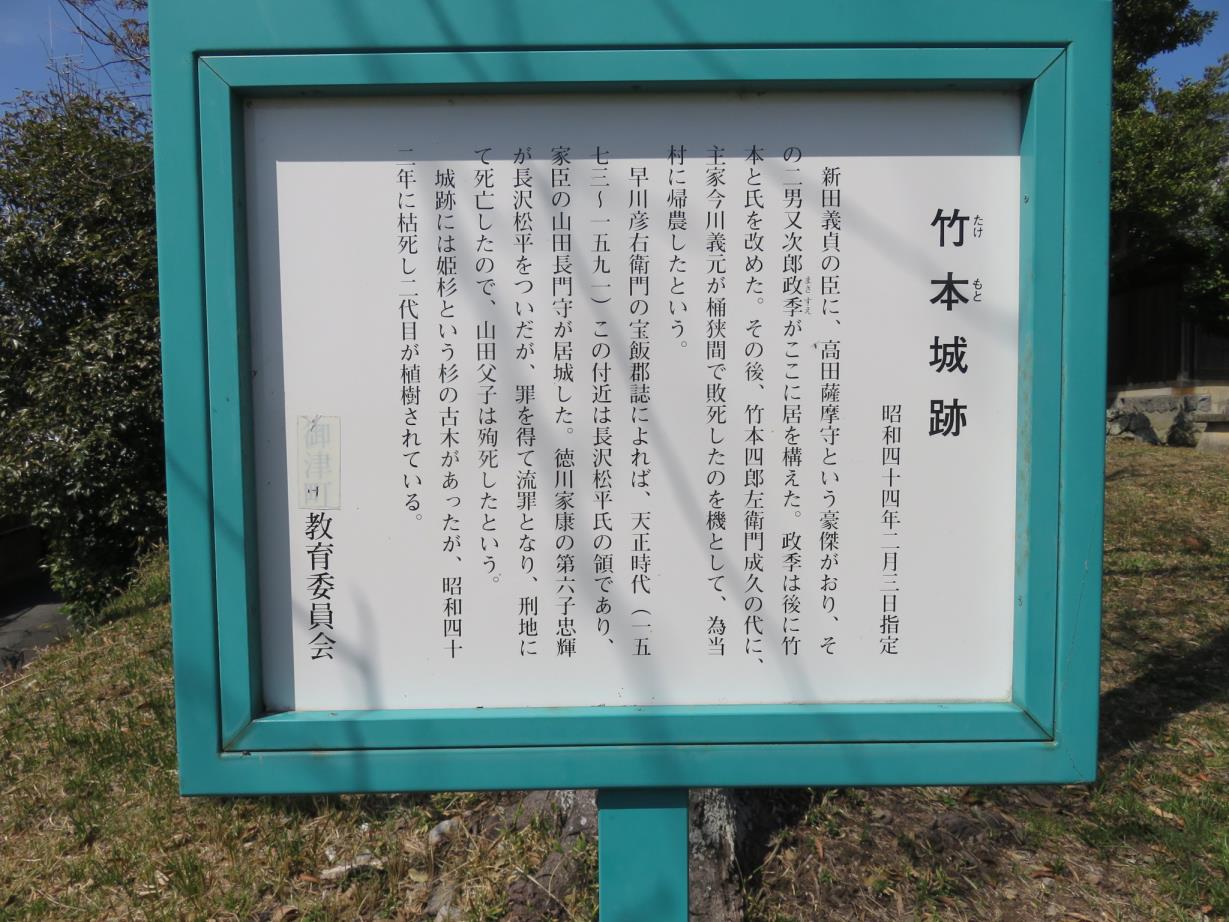 竹本城跡
たけ もと
昭和四十四年二月三日指定
新田義貞の臣に、高田薩摩守という豪傑がおり、そ
の二男又次郎政季がここに居を構えた。政季は後に竹
まさすえ
本と氏を改めた。その後、竹本四郎左衛門成久の代に、
主家今川義元が桶狭間で敗死したのを機として、為当
村に帰農したという。
早川彦右衛門の宝飯郡誌によれば、天正時代（一五
七三〜一五九一）この付近は長沢松平氏の領であり、
家臣の山田長門守が居城した。徳川家康の第六子忠輝
が長沢松平をついだが、罪を得て流罪となり、刑地に
て死亡したので、山田父子は殉死したという。
城跡には姫杉という杉の古木があったが、昭和四十
二年に枯死し二代目が植樹されている。
教育委員会